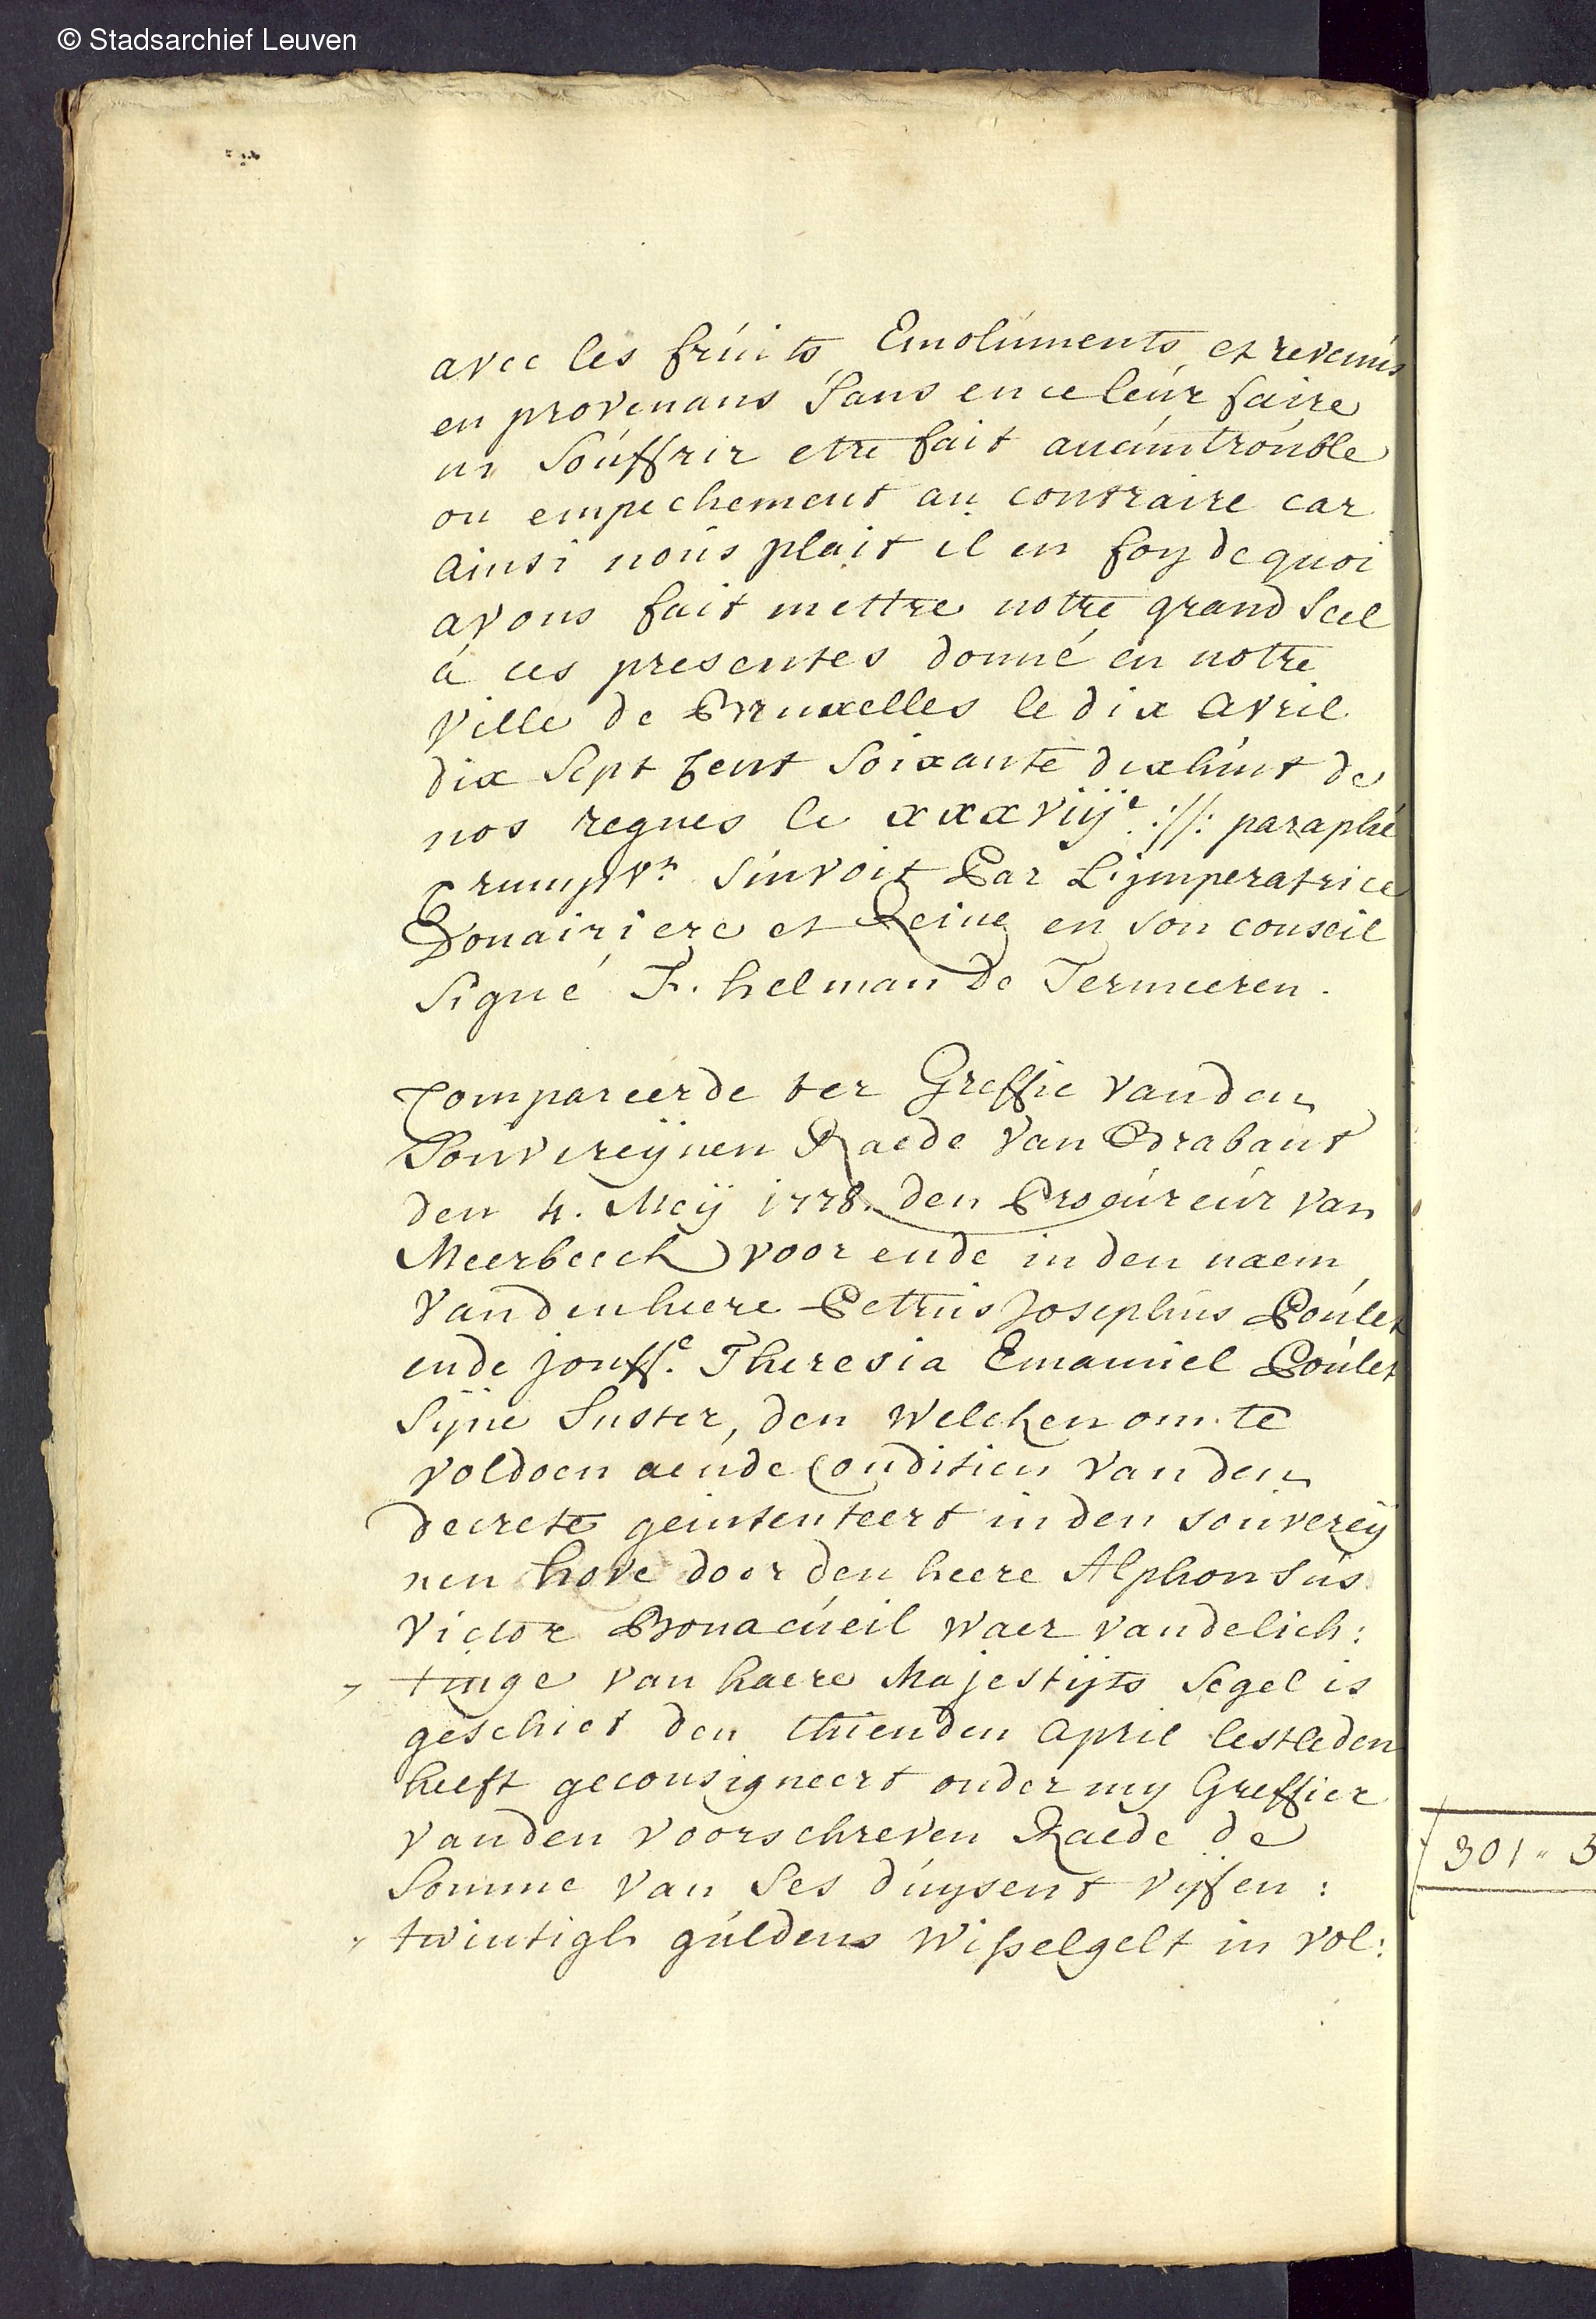 © Stadsarchief Leuven
avec les fruits Emoluments et revenus
en provenans Sans en ce leur faire
ni Souffrir etre fait aucun trouble
ou empechement au contraire car
ainsi nous plait il en foy de quoi
avons fait mettre notre grand Scel
á ces presentes donné en notre
Ville de Bruxelles le dix avril
dix Sept Cent Soixante dixhuit de
nos regnes le xxxviije ://: paraphé
Crumpvn Suivoit Par L'jmperatrice
Douairiere et Reine en son conseil
Signé F. helman De Termeeren.
Compareerde ter Greffie vanden
Souvereijnen Raede van Brabant
den 4. Meij 1778. den Procureur van
Meerbeeck voor ende in den naem
vanden heere Petrus Josephus Poulet
ende jouffe. Theresia Emanuel Poulet
Sijne Suster, den welcken om te
voldoen aende Conditien van den
decrete geintenteert in den souvereij
nen hove door den heere Alphonsus
Victor Bonacueil waer van de lich:
tinge van haere Majestijts Segel is
geschiet den thienden april lestleden
heeft geconsigneert onder my Greffier
vanden voorschreven Raede de
Somme van Ses duysent vijfen:
twintigh guldens wisselgelt in vol:
301 " 3